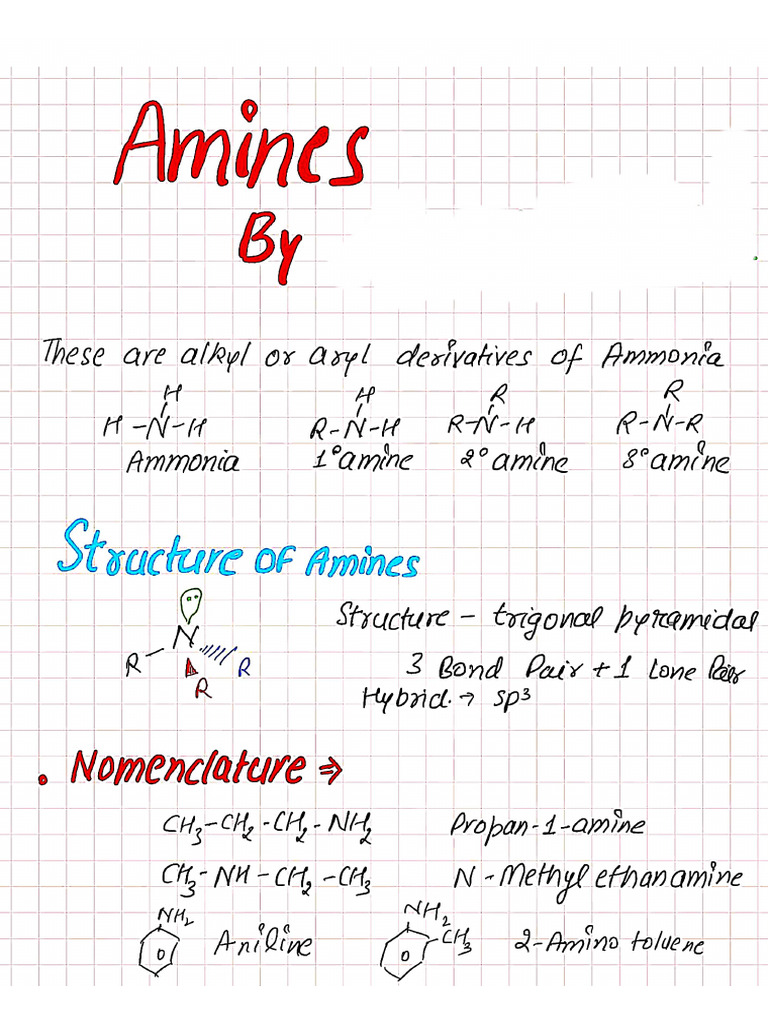 Amines
By
These are alkyl or aryl derivatives of Ammonia
H H R R
H-N-H R-N-H R-N-H R-N-R
Ammonia 1° amine 2° amine 3° amine
Structure of Amines
N
R R
R
Structure - trigonal pyramidal
3 Bond Pair + 1 Lone Pair
Hybrid. → sp³
• Nomenclature ⇒
CH₃-CH₂-CH₂-NH₂ Propan-1-amine
CH₃-NH-CH₂-CH₃ N-Methylethanamine
NH₂ Aniline NH₂ CH₃ 2-Aminotoluene